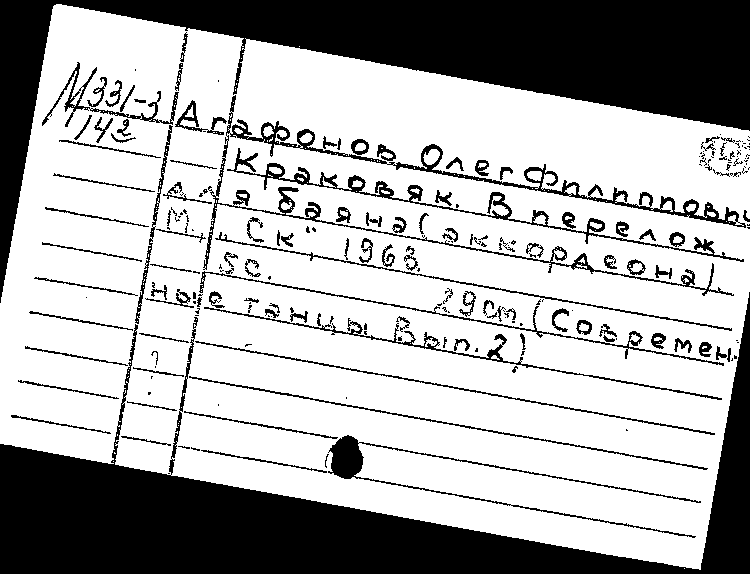 М331-3
142
Агафонов, Олег Филиппович
Краковяк. В перелож.
для баяна (аккордеона).
М., „Ск", 1963.
5с. 29см. (Современ-
ные танцы. Вып. 2)
?